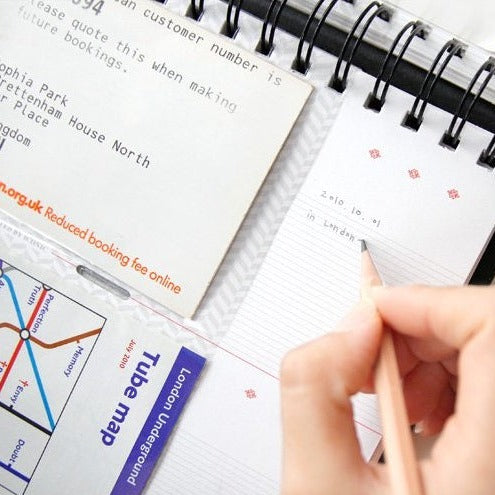 094
an customer number is
Please quote this when making
future bookings.
ophia Park
rettenham House North
er Place
ngdom
n.org.uk Reduced booking fee online
2010. 10. 01
in London
London Underground
Tube map
July 2010
Perfection
Truth
Memory
Envy
Doubt